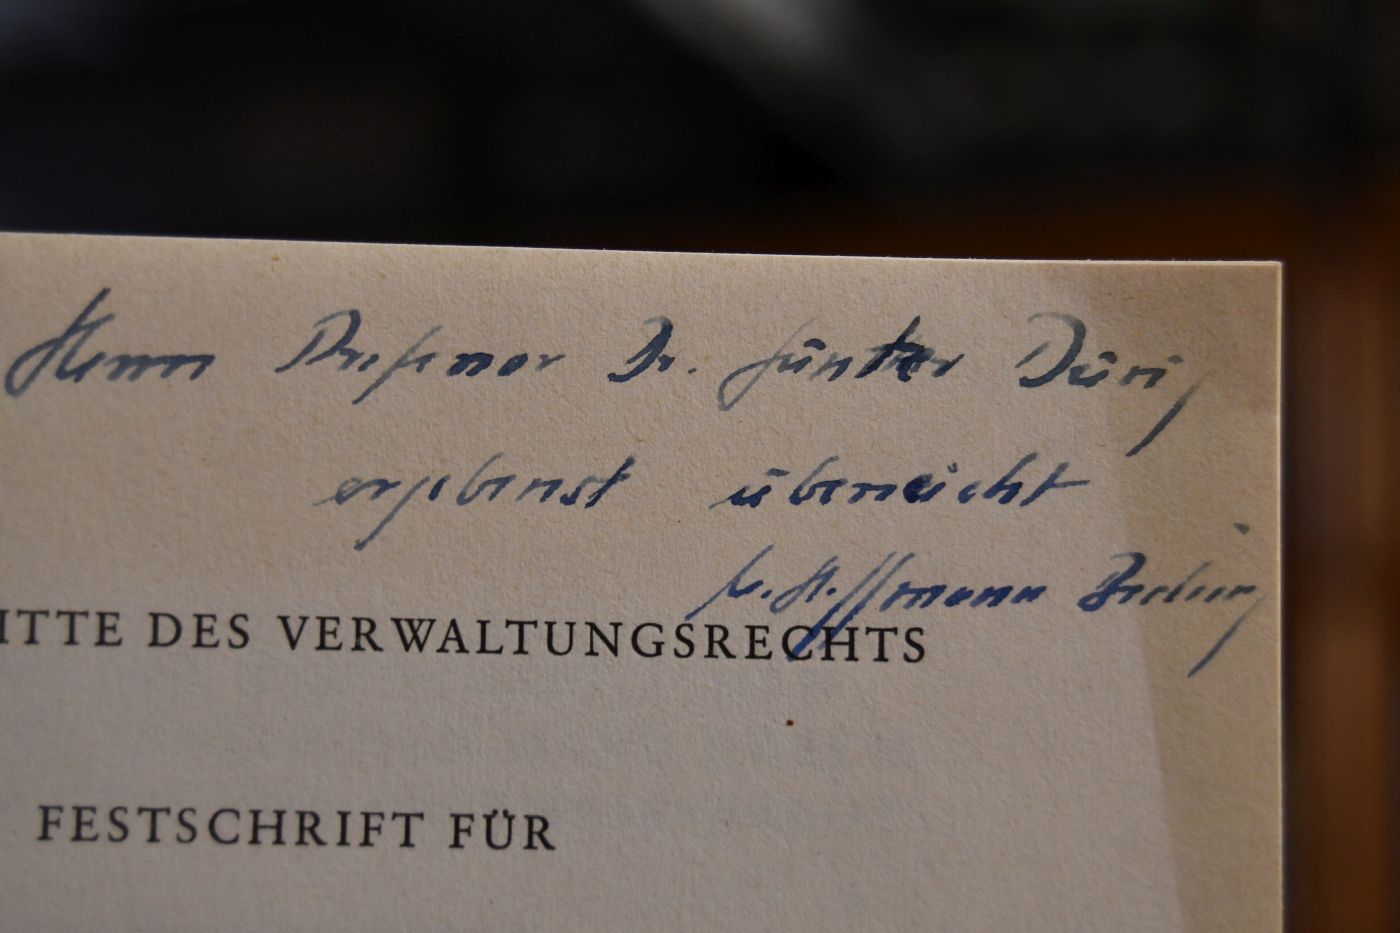 Herrn Professor Dr. Günter Dürig
ergebenst überreicht
ITTE DES VERWALTUNGSRECHTS
FESTSCHRIFT FÜR